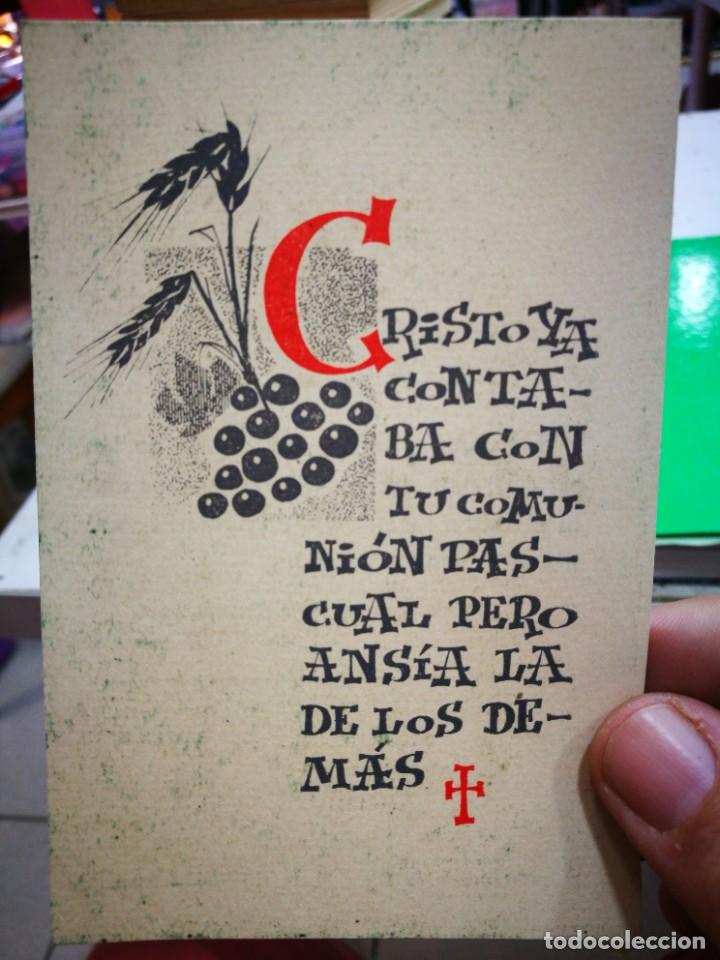 CRiSTO YA
CONTA-
BA CON
TU COMU-
NiÓN PAS-
CUAL PERO
ANSíA LA
DE LOS DE-
MÁS
todocoleccion